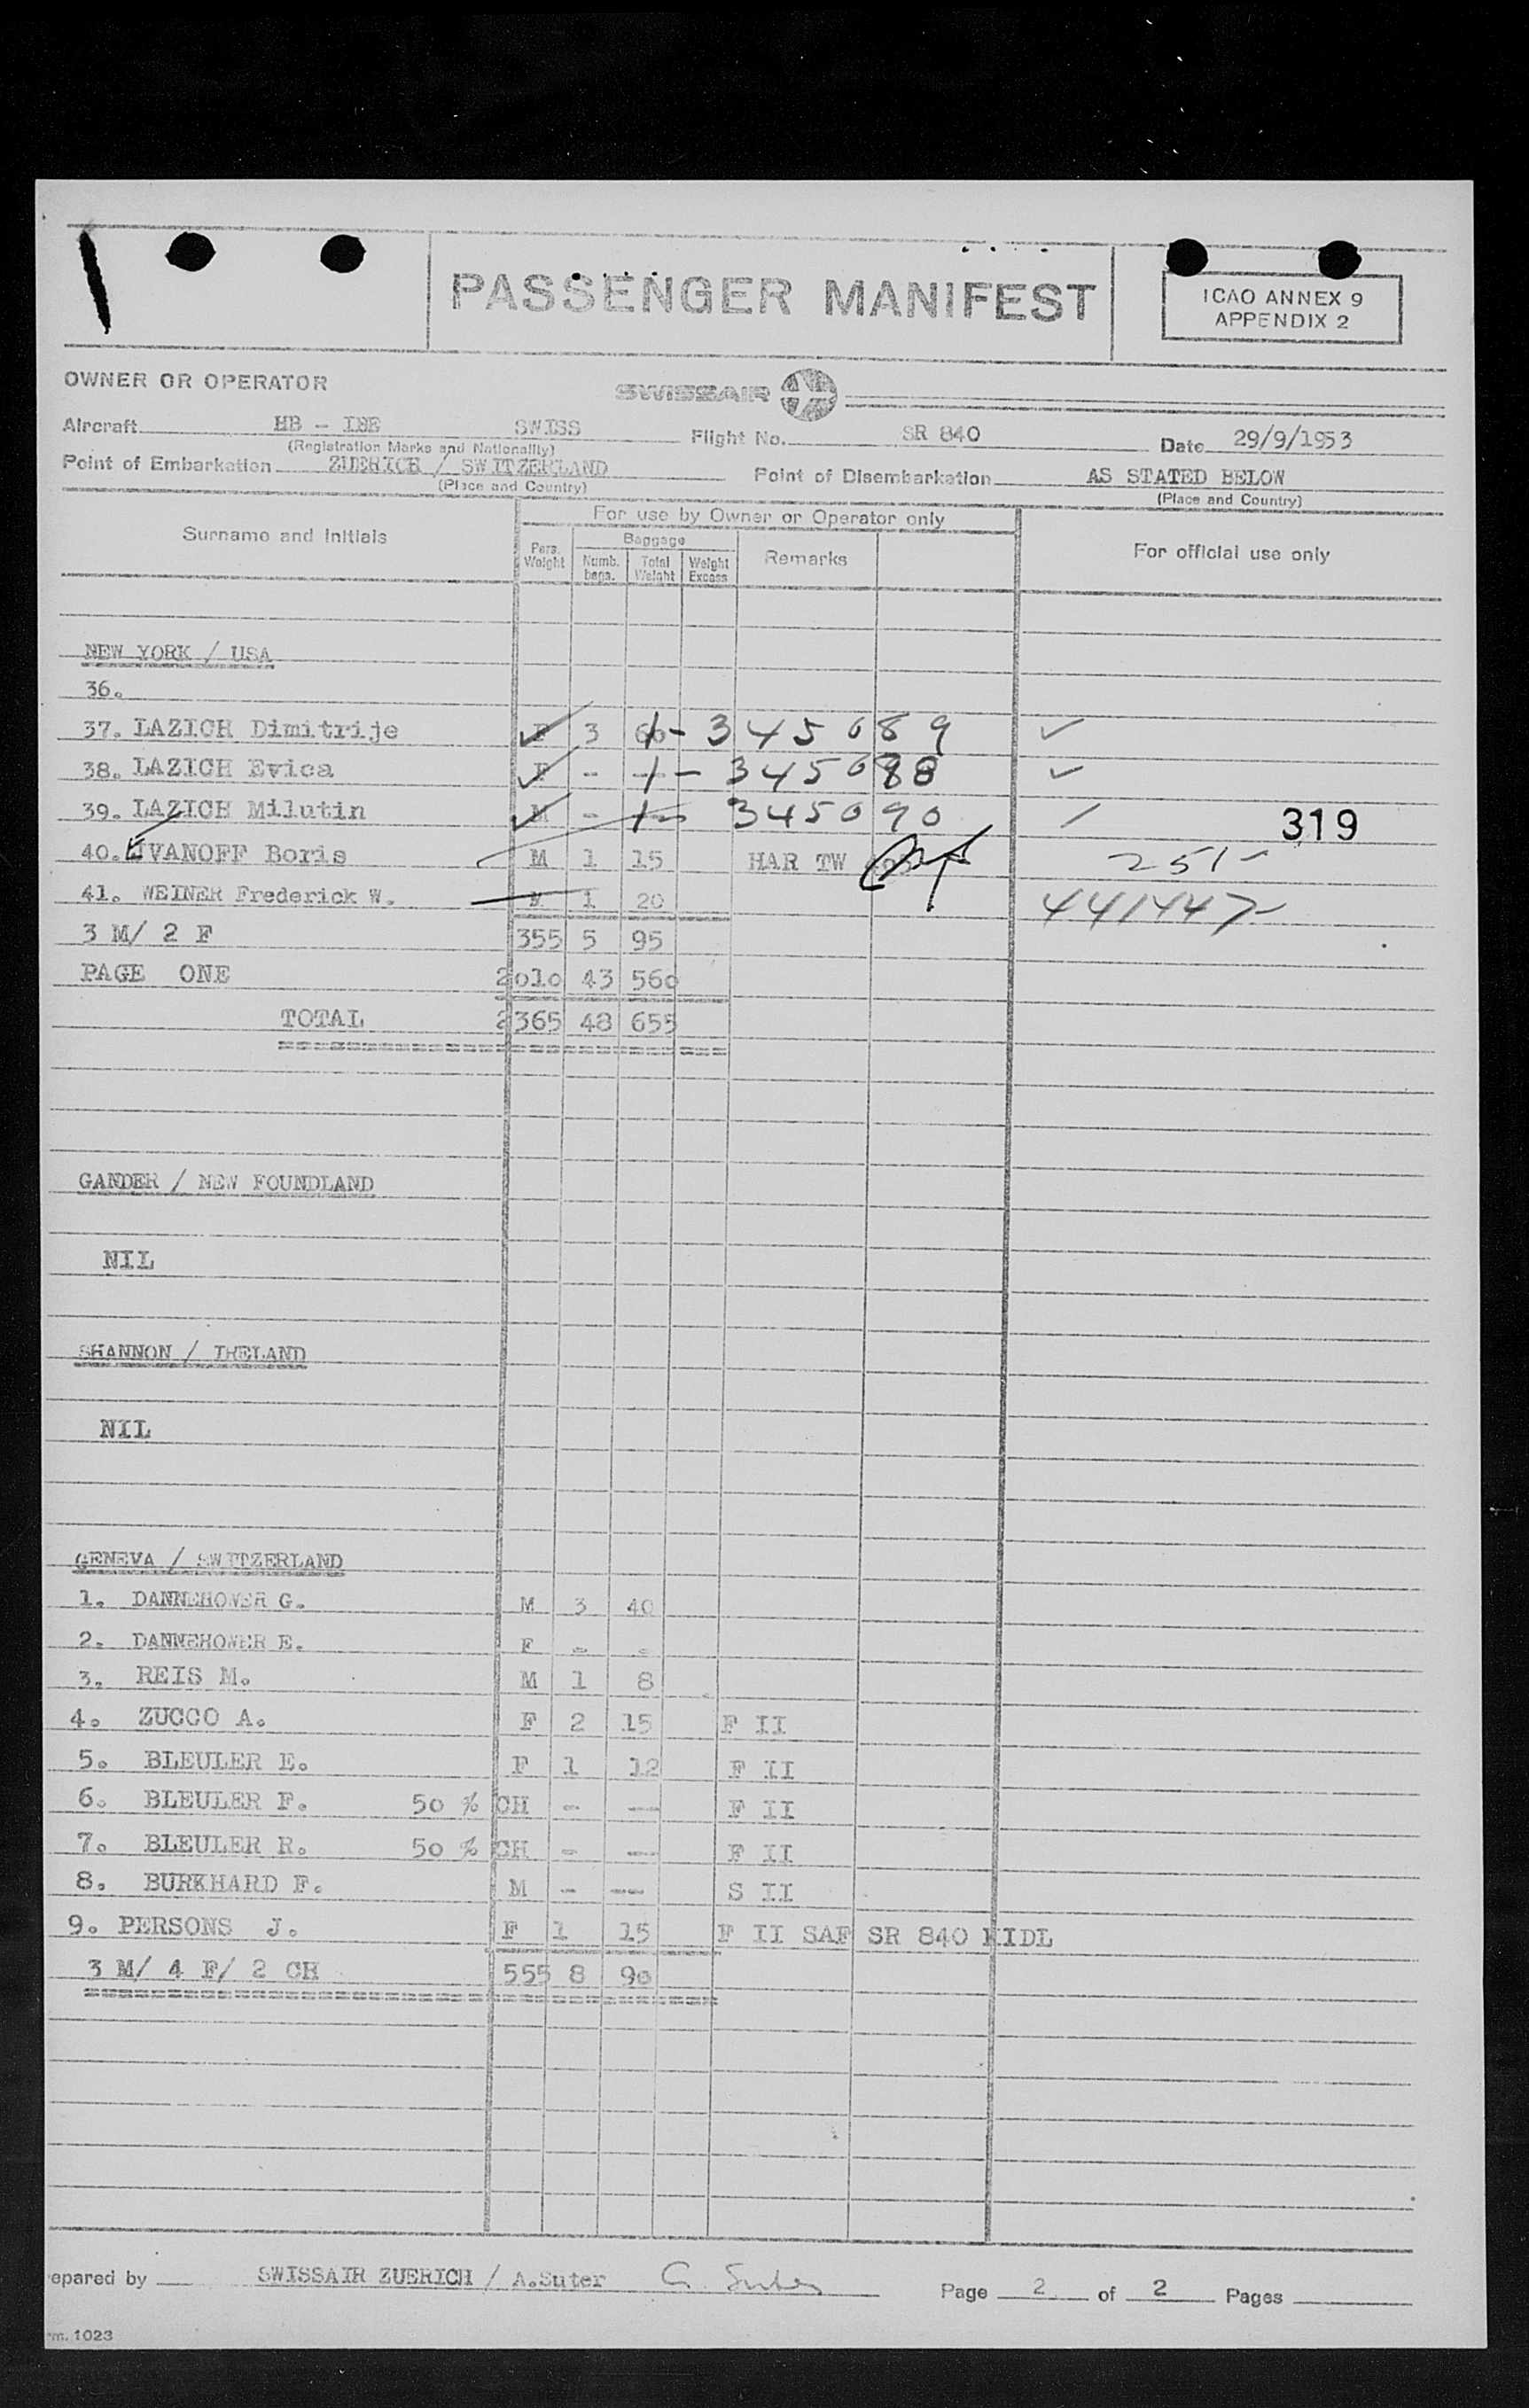 PASSENGER MANIFEST
ICAO ANNEX 9
APPENDIX 2
OWNER OR OPERATOR SWISSAIR
Aircraft HB - SWISS Flight No. SR 840 Date 29/9/1953
(Registration Marks and Nationality)
Point of Embarkation ZUERICH / SWITZERLAND Point of Disembarkation AS STATED BELOW
(Place and Country) (Place and Country)
Surname and Initials For use by Owner or Operator only For official use only
Pers. Weight Baggage Numb. bags. Total Weight Weight Excess Remarks
NEW YORK / USA
36.
37. LAZICH Dimitrije 3 60 1- 345089 ✓
38. LAZICH Evica F - 1- 345088 ✓
39. LAZICH Milutin M - 345090 /
319
40. IVANOFF Boris M 1 15 HAR TW 251-
41. WEINER Frederick W. M 1 20 441447-
3 M/ 2 F 355 5 95
PAGE ONE 2010 43 560
TOTAL 2365 48 655
GANDER / NEW FOUNDLAND
NIL
SHANNON / IRELAND
NIL
GENEVA / SWITZERLAND
1. DANNEHOWER G. M 3 40
2. DANNEHOWER E. F - -
3. REIS M. M 1 8
4. ZUCCO A. F 2 15 F II
5. BLEULER E. F 1 12 F II
6. BLEULER F. 50 % CH - -- F II
7. BLEULER R. 50 % CH - -- F II
8. BURKHARD F. M - -- S II
9. PERSONS J. F 1 15 F II SAF SR 840 KIDL
3 M/ 4 F/ 2 CH 555 8 90
epared by SWISSAIR ZUERICH / A.Suter A. Suter Page 2 of 2 Pages
rm. 1023